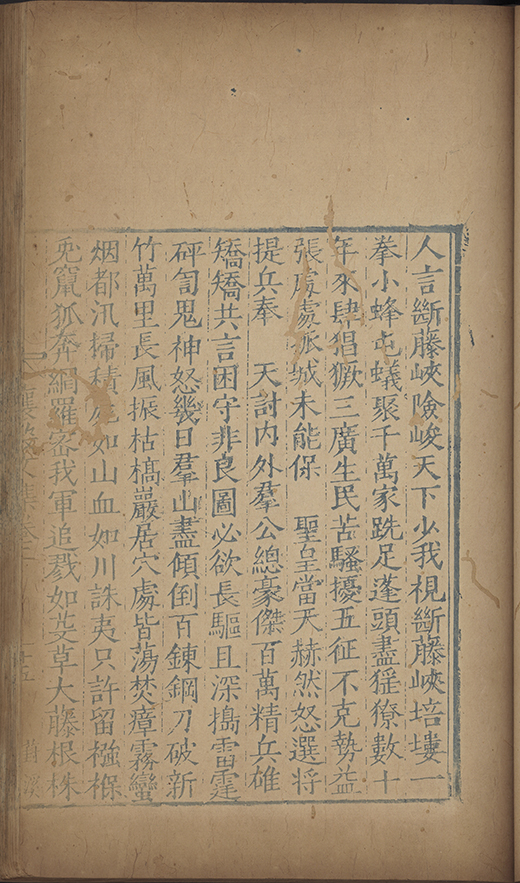 人言斷藤峽險峻天下少我視斷藤峽培塿一
拳小蜂屯蟻聚千萬家跣足蓬頭盡猺獠數十
年來肆猖獗三廣生民苦騷擾五征不克勢益
張處處孤城未能保　聖皇當天赫然怒選將
提兵奉　天討内外羣公總豪傑百萬精兵雄
矯矯共言困守非良圖必欲長驅且深搗雷霆
砰訇鬼神怒幾日羣山盡傾倒百鍊鋼刀破新
竹萬里長風振枯槁巖居穴處皆蕩焚瘴霧蠻
烟都汛掃積屍如山血如川誅夷只許留襁褓
兎竄狐奔網羅密我軍追戮如芟草大藤根株
襄毅文集卷一　十五